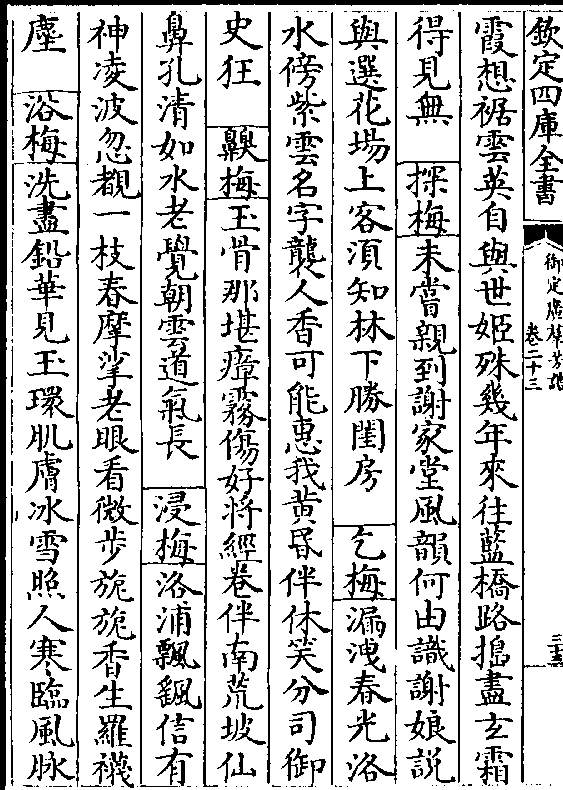 欽定四庫全書
御定廣羣芳譜
卷二十三
三十三
霞想裾雲英自與世姬殊幾年來往藍橋路搗盡玄霜
得見無 探梅未嘗親到謝家堂風韻何由識謝娘説
與選花場上客須知林下勝閨房 乞梅漏洩春光洛
水傍紫雲名字襲人香可能惠我黄昏伴休笑分司御
史狂 齅梅玉骨那堪瘴霧傷好將經卷伴南荒坡仙
鼻孔清如水老覺朝雲道氣長 浸梅洛浦飄颻信有
神凌波忽覩一枝春摩挲老眼看微步旎旎香生羅襪
塵 浴梅洗盡鉛華見玉環肌膚冰雪照人寒臨風脉